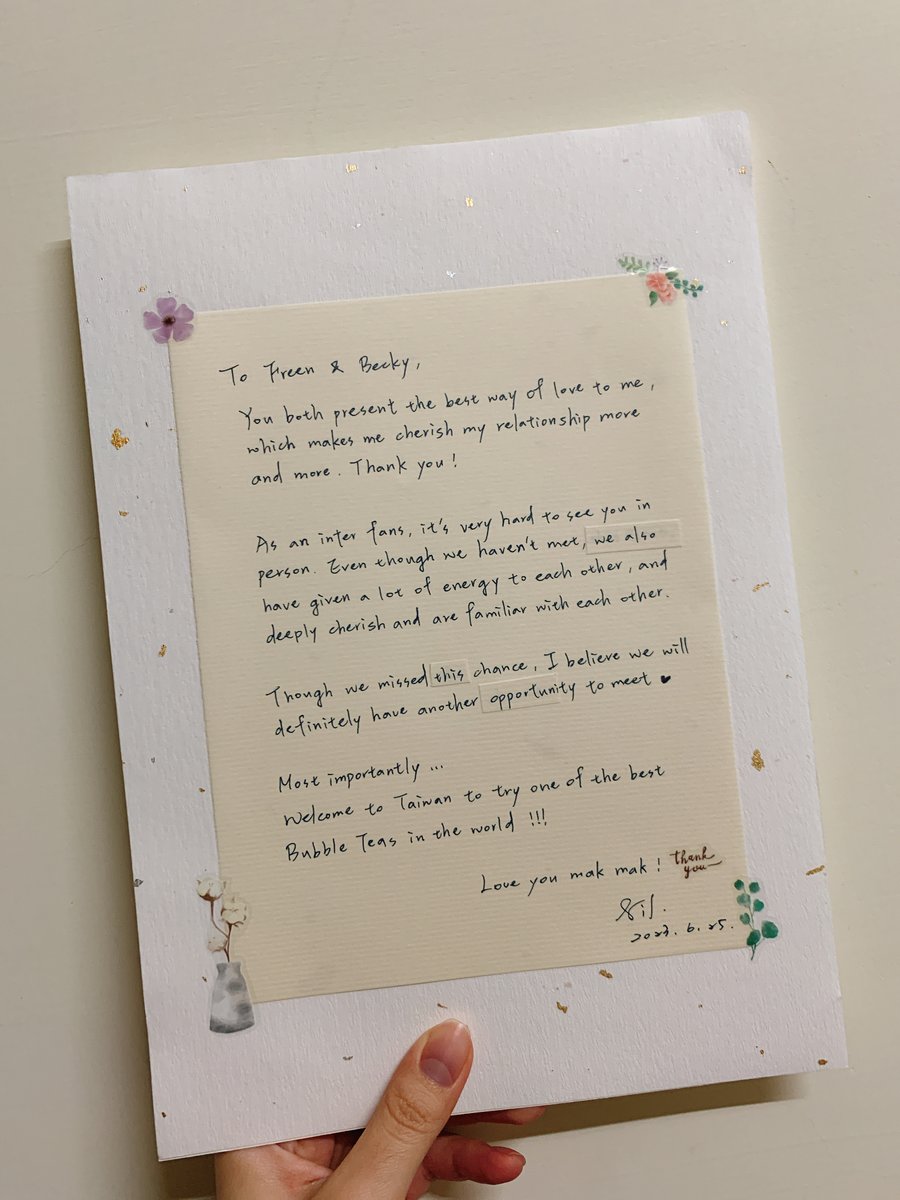 To Freen & Becky,
You both present the best way of love to me,
which makes me cherish my relationship more
and more. Thank you!
As an inter fans, it's very hard to see you in
person. Even though we haven't met, we also
have given a lot of energy to each other, and
deeply cherish and are familiar with each other.
Though we missed this chance, I believe we will
definitely have another opportunity to meet ♥
Most importantly ...
Welcome to Taiwan to try one of the best
Bubble Teas in the world !!!
Love you mak mak! thank
you
2023.6.25.